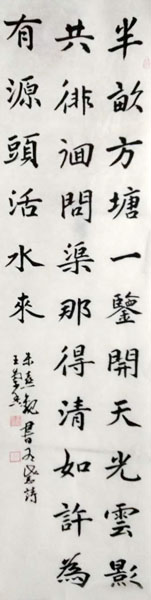 半畝方塘一鑒開天光雲影
共徘徊問渠那得清如許為
有源頭活水來
朱熹觀書有感詩
王